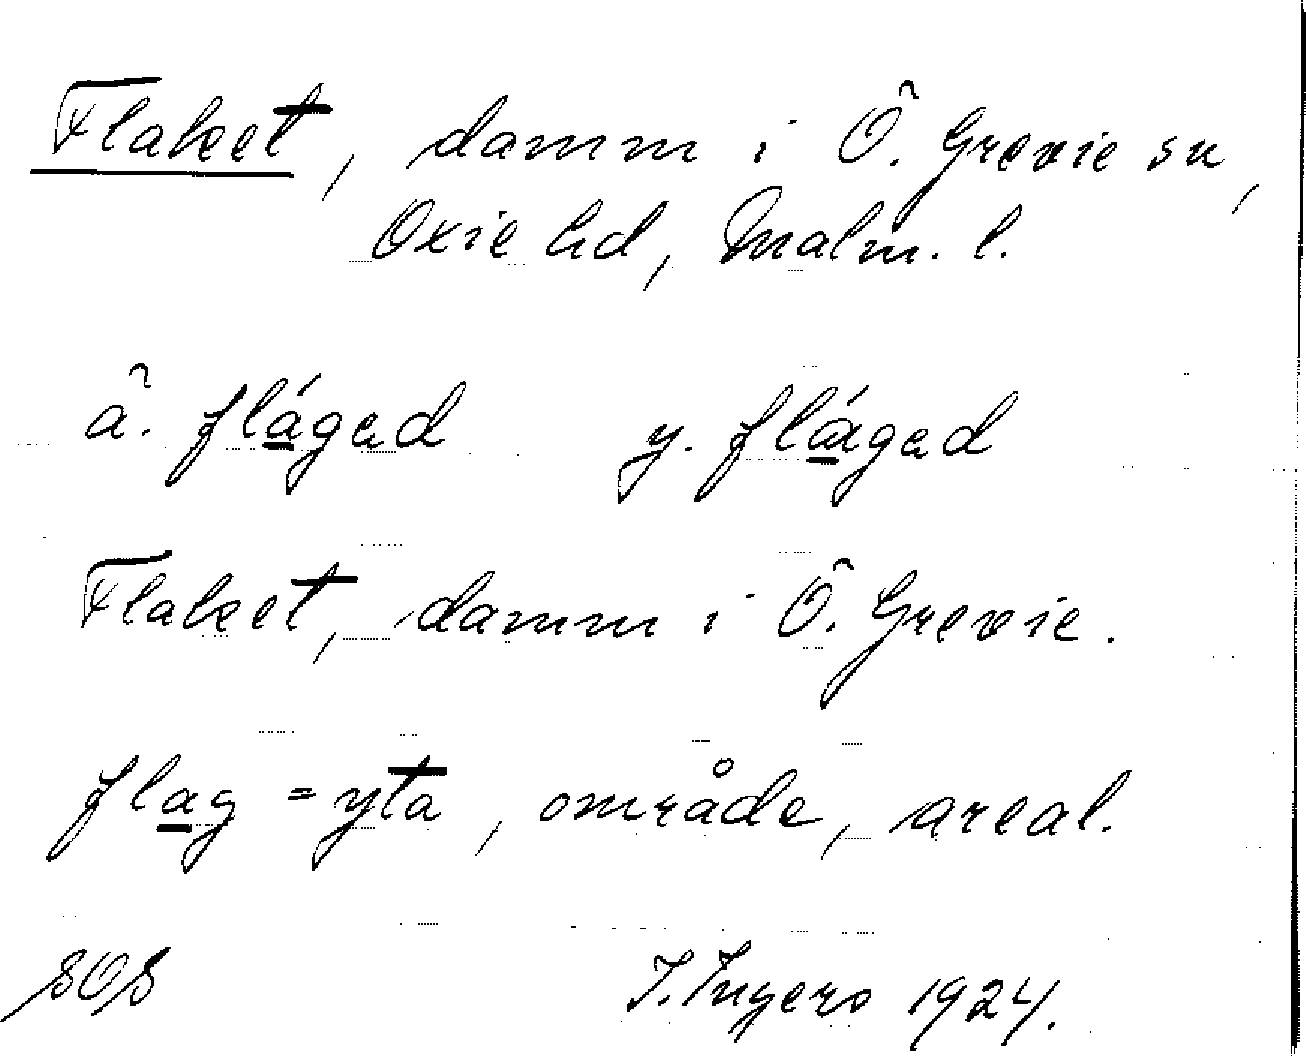 Flaket, damm i Ö. Grevie sn,
Oxie hd, Malm. l.
ä. flágad y. flágad
Flaket, damm i Ö. Grevie.
flag = yta, område, areal.
SOS I. Ingers 1924.